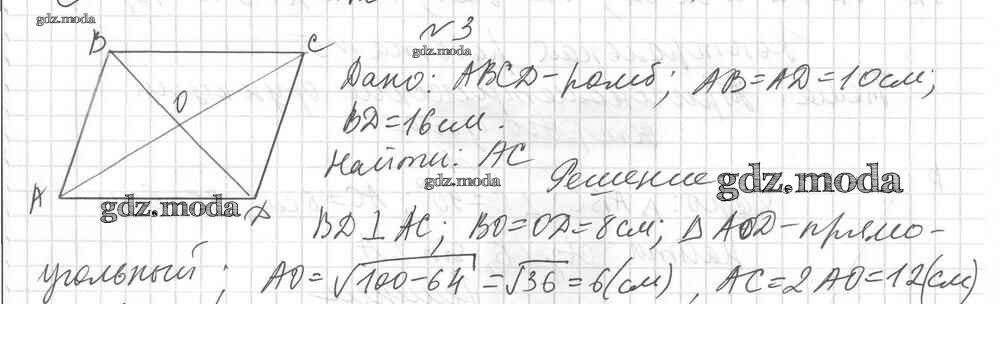 gdz.moda
№3
gdz.moda
B
C
O
A
D
Дано: ABCD - ромб; AB=AD=10см;
BD=16см.
Найти: AC
gdz.moda
Решение gdz.moda
gdz.moda
BD⊥AC; BO=OD=8см; △AOD - прямо-
угольный; AO=√100-64 =√36=6(см), AC=2AO=12(см)